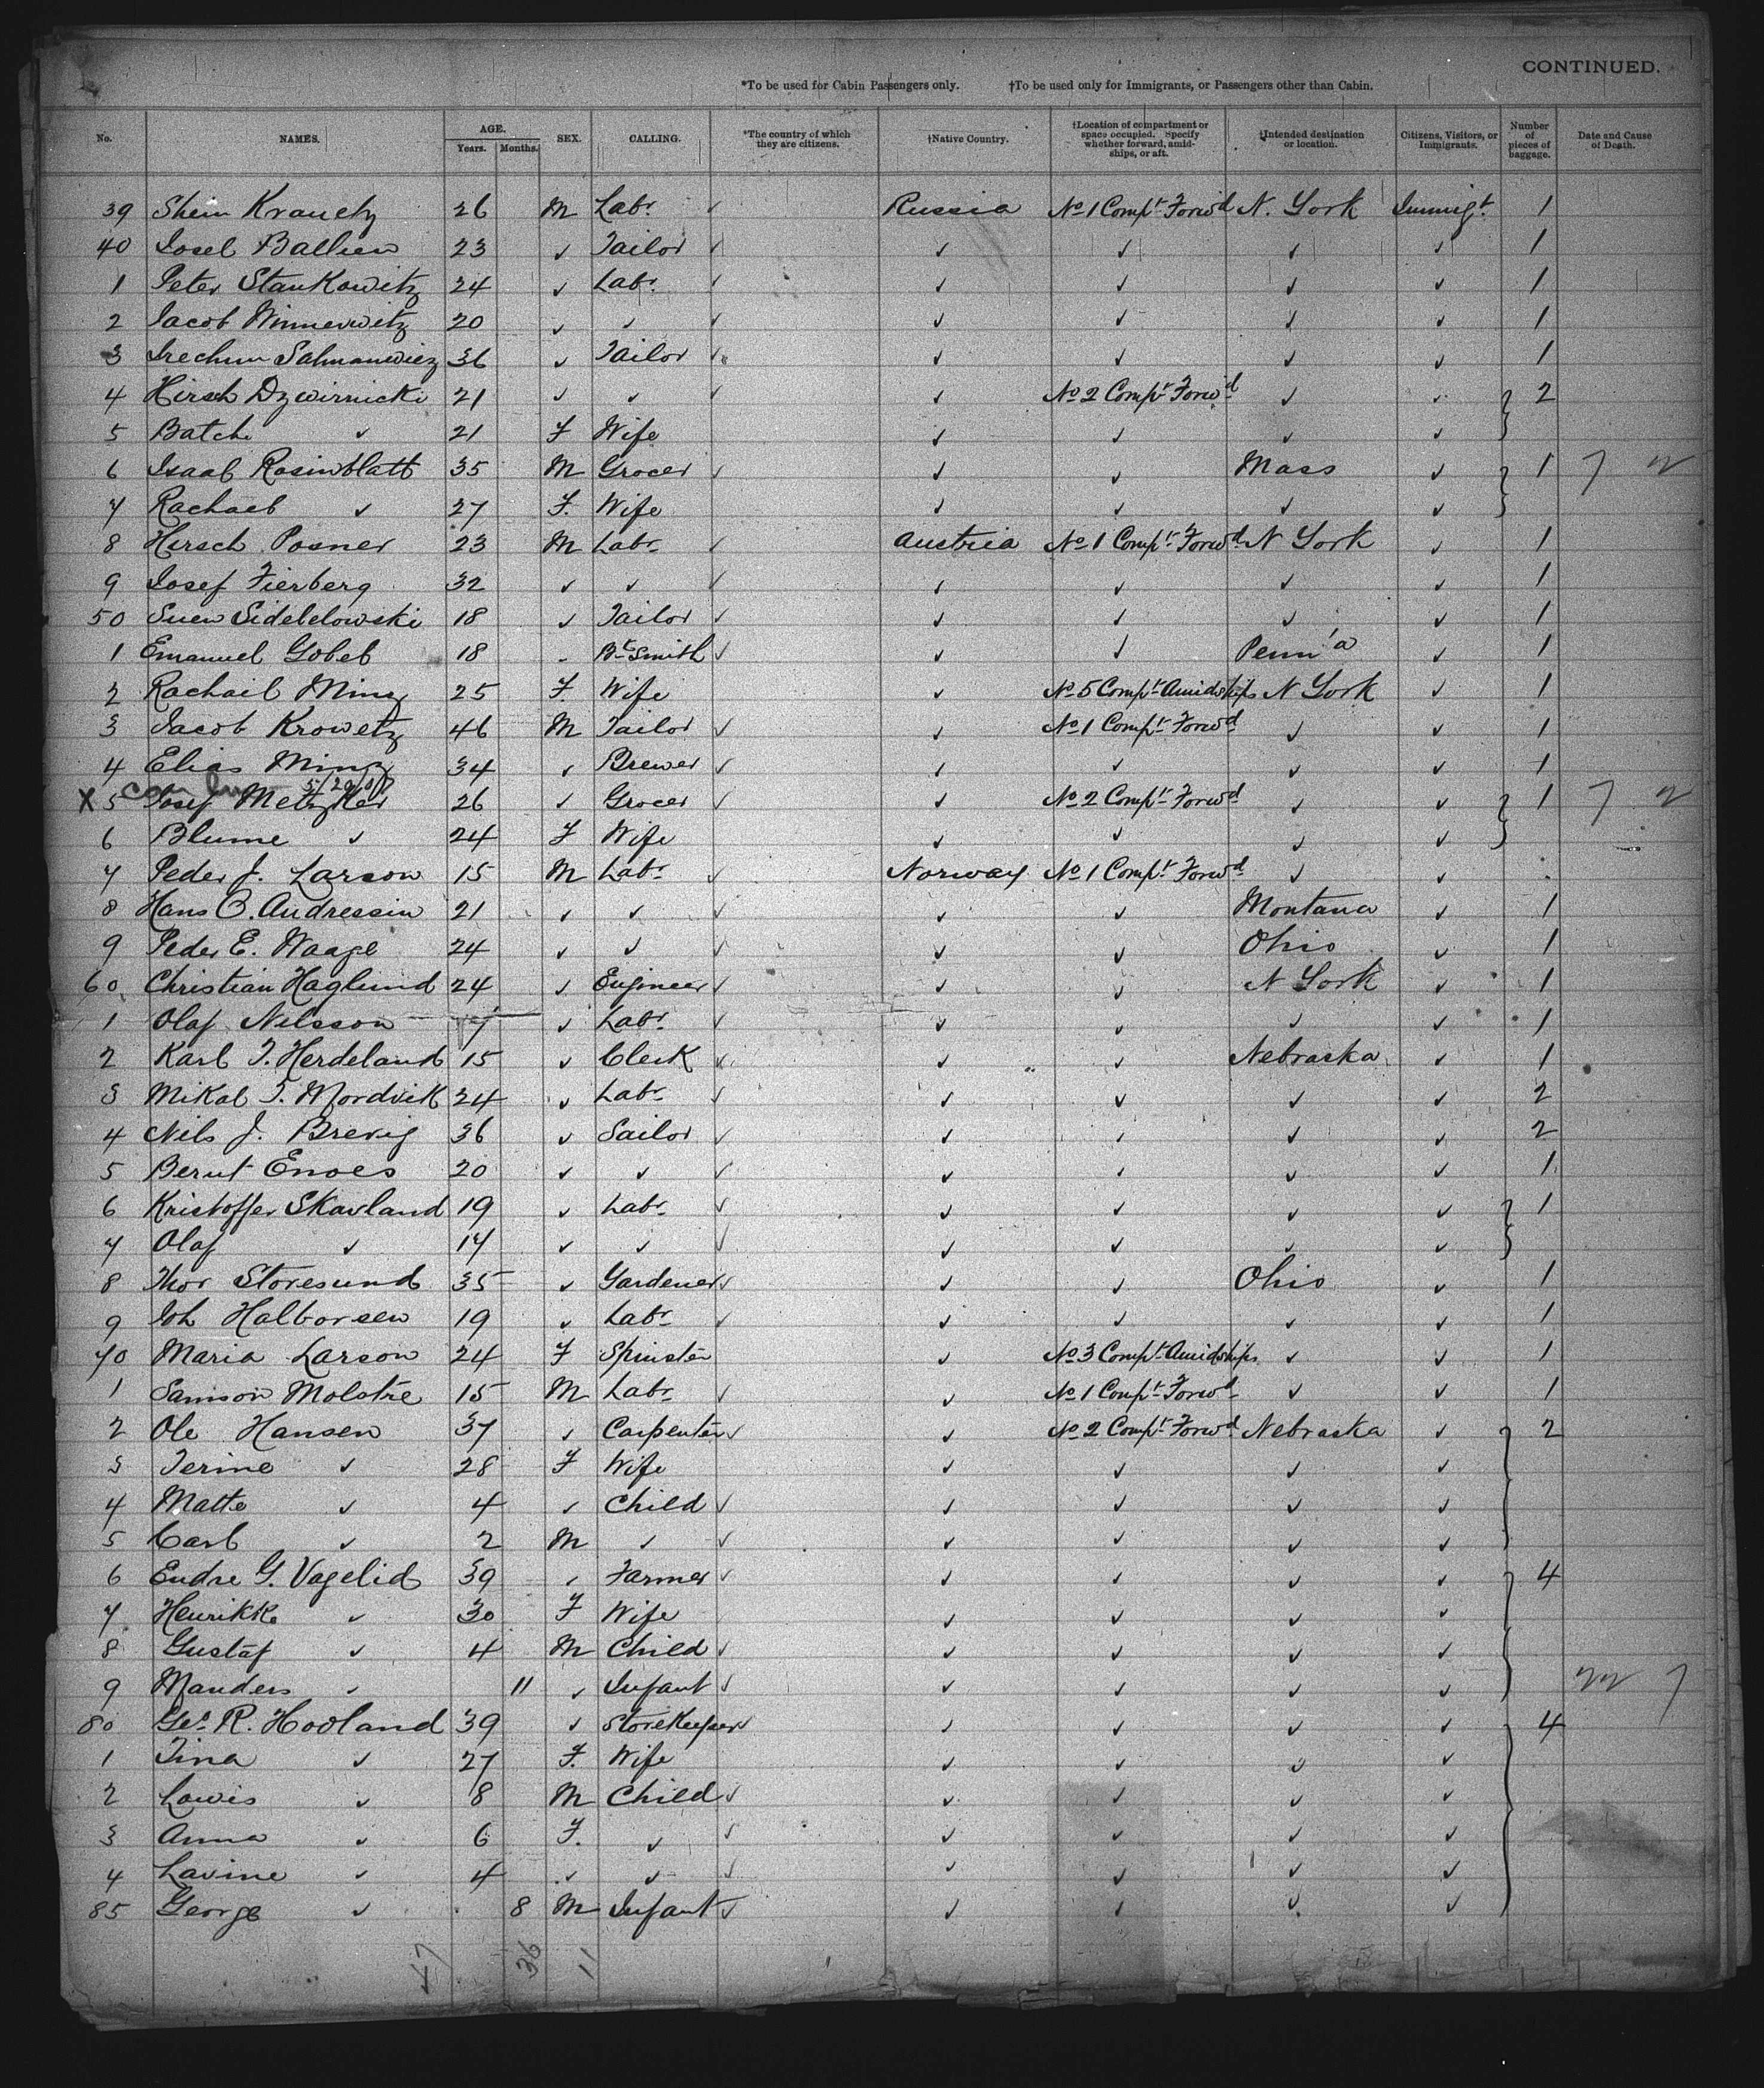 CONTINUED.
*To be used for Cabin Passengers only. †To be used only for Immigrants, or Passengers other than Cabin.
No. NAMES. AGE. Years. Months. SEX. CALLING. *The country of which they are citizens. †Native Country. †Location of compartment or space occupied. Specify whether forward, amidships, or aft. †Intended destination or location. Citizens, Visitors, or Immigrants. Number of pieces of baggage. Date and Cause of Death.
39 Shem Krauetz 26 M Labr ✓ Russia No 1 Compt Forwd N. York Immigt. 1
40 Josel Ballien 23 ✓ Tailor ✓ ✓ ✓ ✓ ✓ 1
1 Peter Stankowitz 24 ✓ Labr ✓ ✓ ✓ ✓ ✓ 1
2 Jacob Winnerwitz 20 ✓ ✓ ✓ ✓ ✓ ✓ ✓ 1
3 Salmanwiez 36 ✓ Tailor ✓ ✓ ✓ ✓ ✓ 1
4 Hirsch Dzwirnicki 21 ✓ ✓ ✓ ✓ No 2 Compt Forwd ✓ ✓ } 2
5 Batche ✓ 21 F Wife ✓ ✓ ✓ ✓
6 Isaab Rosinblatt 35 M Grocer ✓ ✓ ✓ Mass ✓ } 1
7 Rachaeb ✓ 27 F. Wife ✓ ✓ ✓ ✓
8 Hersch Posner 23 M Labr ✓ Austria No 1 Compt Forwd N York ✓ 1
9 Josef Fierberg 32 ✓ ✓ ✓ ✓ ✓ ✓ ✓ 1
50 Suew Sidelelowski 18 ✓ Tailor ✓ ✓ ✓ ✓ ✓ 1
1 Emanuel Gobeb 18 ✓ Bk Smith ✓ ✓ ✓ Penn'a ✓ 1
2 Rachail Minz 25 F Wife ✓ No 5 Compt Amidships N York ✓ 1
3 Jacob Krowetz 46 M Tailor ✓ ✓ No 1 Compt Forwd ✓ ✓ 1
4 Elias Minz 34 ✓ Brewer ✓ ✓ ✓ ✓ ✓ 1
X 5 Josef Metzker 26 ✓ Grocer ✓ ✓ No 2 Compt Forwd ✓ ✓ } 1
6 Blume ✓ 24 F Wife ✓ ✓ ✓ ✓
7 Peder J. Larson 15 M Labr ✓ Norway No 1 Compt Forwd ✓ ✓
8 Hans O. Andressin 21 ✓ ✓ ✓ ✓ ✓ Montana ✓ 1
9 Peder E. Waage 24 ✓ ✓ ✓ ✓ ✓ Ohio ✓ 1
60 Christian Haglund 24 ✓ Engineer ✓ ✓ ✓ N York ✓ 1
1 Olaf Nilsson ✓ Labr ✓ ✓ ✓ ✓ ✓ 1
2 Karl T. Herdeland 15 ✓ Clerk ✓ ✓ ✓ Nebraska ✓ 1
3 Mikal T. Mordvik 24 ✓ Labr ✓ ✓ ✓ ✓ ✓ 2
4 Nils J. Brevig 36 ✓ Sailor ✓ ✓ ✓ ✓ ✓ 2
5 Berut Enoes 20 ✓ ✓ ✓ ✓ ✓ ✓ ✓ 1
6 Kristoffer Skavland 19 ✓ Labr ✓ ✓ ✓ ✓ ✓ } 1
7 Olaf ✓ 17 ✓ ✓ ✓ ✓ ✓ ✓ ✓
8 Thor Storesund 35 ✓ Gardener ✓ ✓ ✓ Ohio ✓ 1
9 Joh Halborsen 19 ✓ Labr ✓ ✓ ✓ ✓ ✓ 1
70 Maria Larson 24 F Spinster ✓ No 3 Compt Amidships ✓ ✓ 1
1 Samson Molstre 15 M Labr ✓ ✓ No 1 Compt Forwd ✓ ✓ 1
2 Ole Hansen 37 ✓ Carpenter ✓ ✓ No 2 Compt Forwd Nebraska ✓ } 2
3 Terine ✓ 28 F Wife ✓ ✓ ✓ ✓
4 Matte ✓ 4 ✓ Child ✓ ✓ ✓ ✓ ✓
5 Carl ✓ 2 M ✓ ✓ ✓ ✓ ✓ ✓
6 Endre G. Vagelid 39 ✓ Farmer ✓ ✓ ✓ ✓ ✓ } 4
7 Henrikke ✓ 30 F Wife ✓ ✓ ✓ ✓
8 Gustaf ✓ 4 M Child ✓ ✓ ✓ ✓ ✓
9 Manders ✓ 11 ✓ Infant ✓ ✓ ✓ ✓ ✓
80 Geo. R. Hovland 39 ✓ Storekeeper ✓ ✓ ✓ ✓ ✓ } 4
1 Tina ✓ 27 F. Wife ✓ ✓ ✓ ✓
2 Lowis ✓ 8 M Child ✓ ✓ ✓ ✓ ✓
3 Anna ✓ 6 F. ✓ ✓ ✓ ✓ ✓ ✓
4 Lavine ✓ 4 ✓ ✓ ✓ ✓ ✓ ✓ ✓
85 George ✓ 8 M Infant ✓ ✓ ✓ ✓ ✓
47 36 11